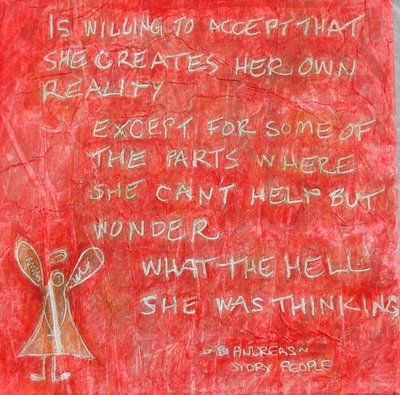 IS WILLING TO ACCEPT THAT
SHE CREATES HER OWN
REALITY
EXCEPT FOR SOME OF
THE PARTS WHERE
SHE CAN'T HELP BUT
WONDER
WHAT THE HELL
SHE WAS THINKING
ANDREAS~
STORY PEOPLE